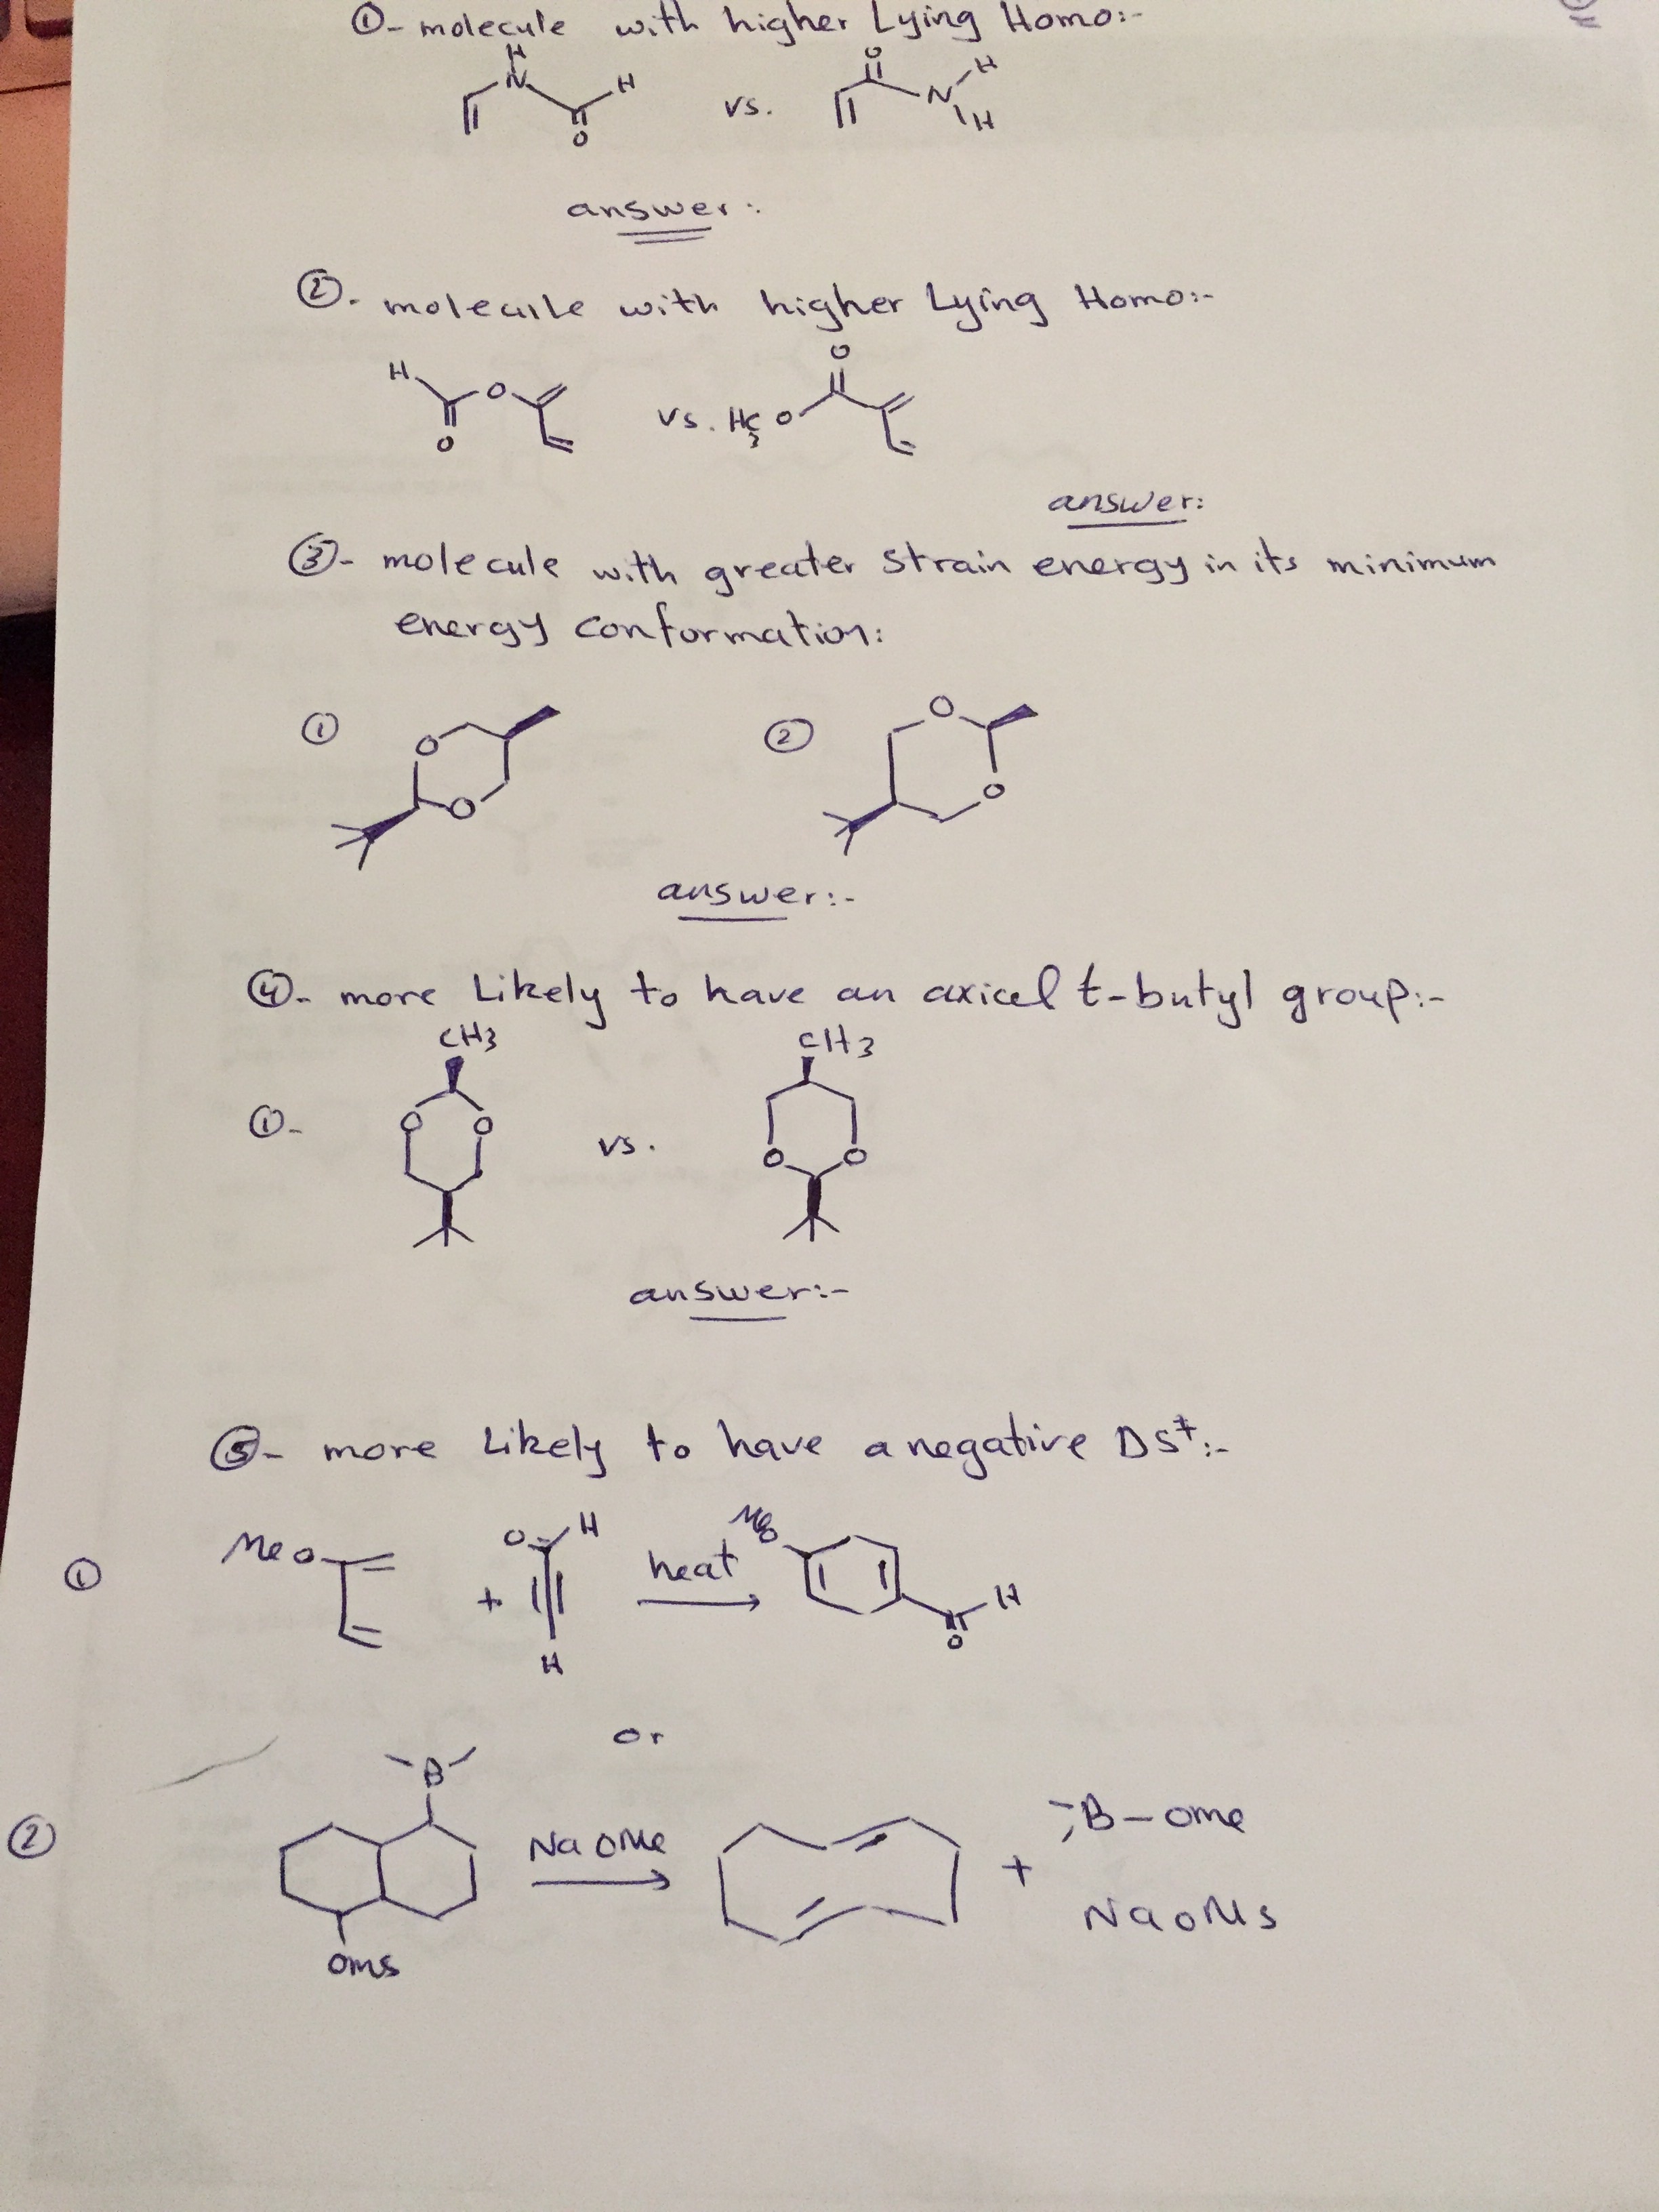 ①- molecule with higher Lying Homo:-
H
N H vs. O N H
O H
answer:
②- molecule with higher Lying Homo:-
O
H O vs. H3C O
O
answer:
③- molecule with greater strain energy in its minimum
energy conformation:
① O O ② O O
answer:-
④- more Likely to have an axial t-butyl group:-
CH3 CH3
①- O O vs. O O
answer:-
⑤- more Likely to have a negative DS‡:-
① MeO + O H H heat MeO H O
or
② B NaOMe + B-OMe
NaOMs
OMs